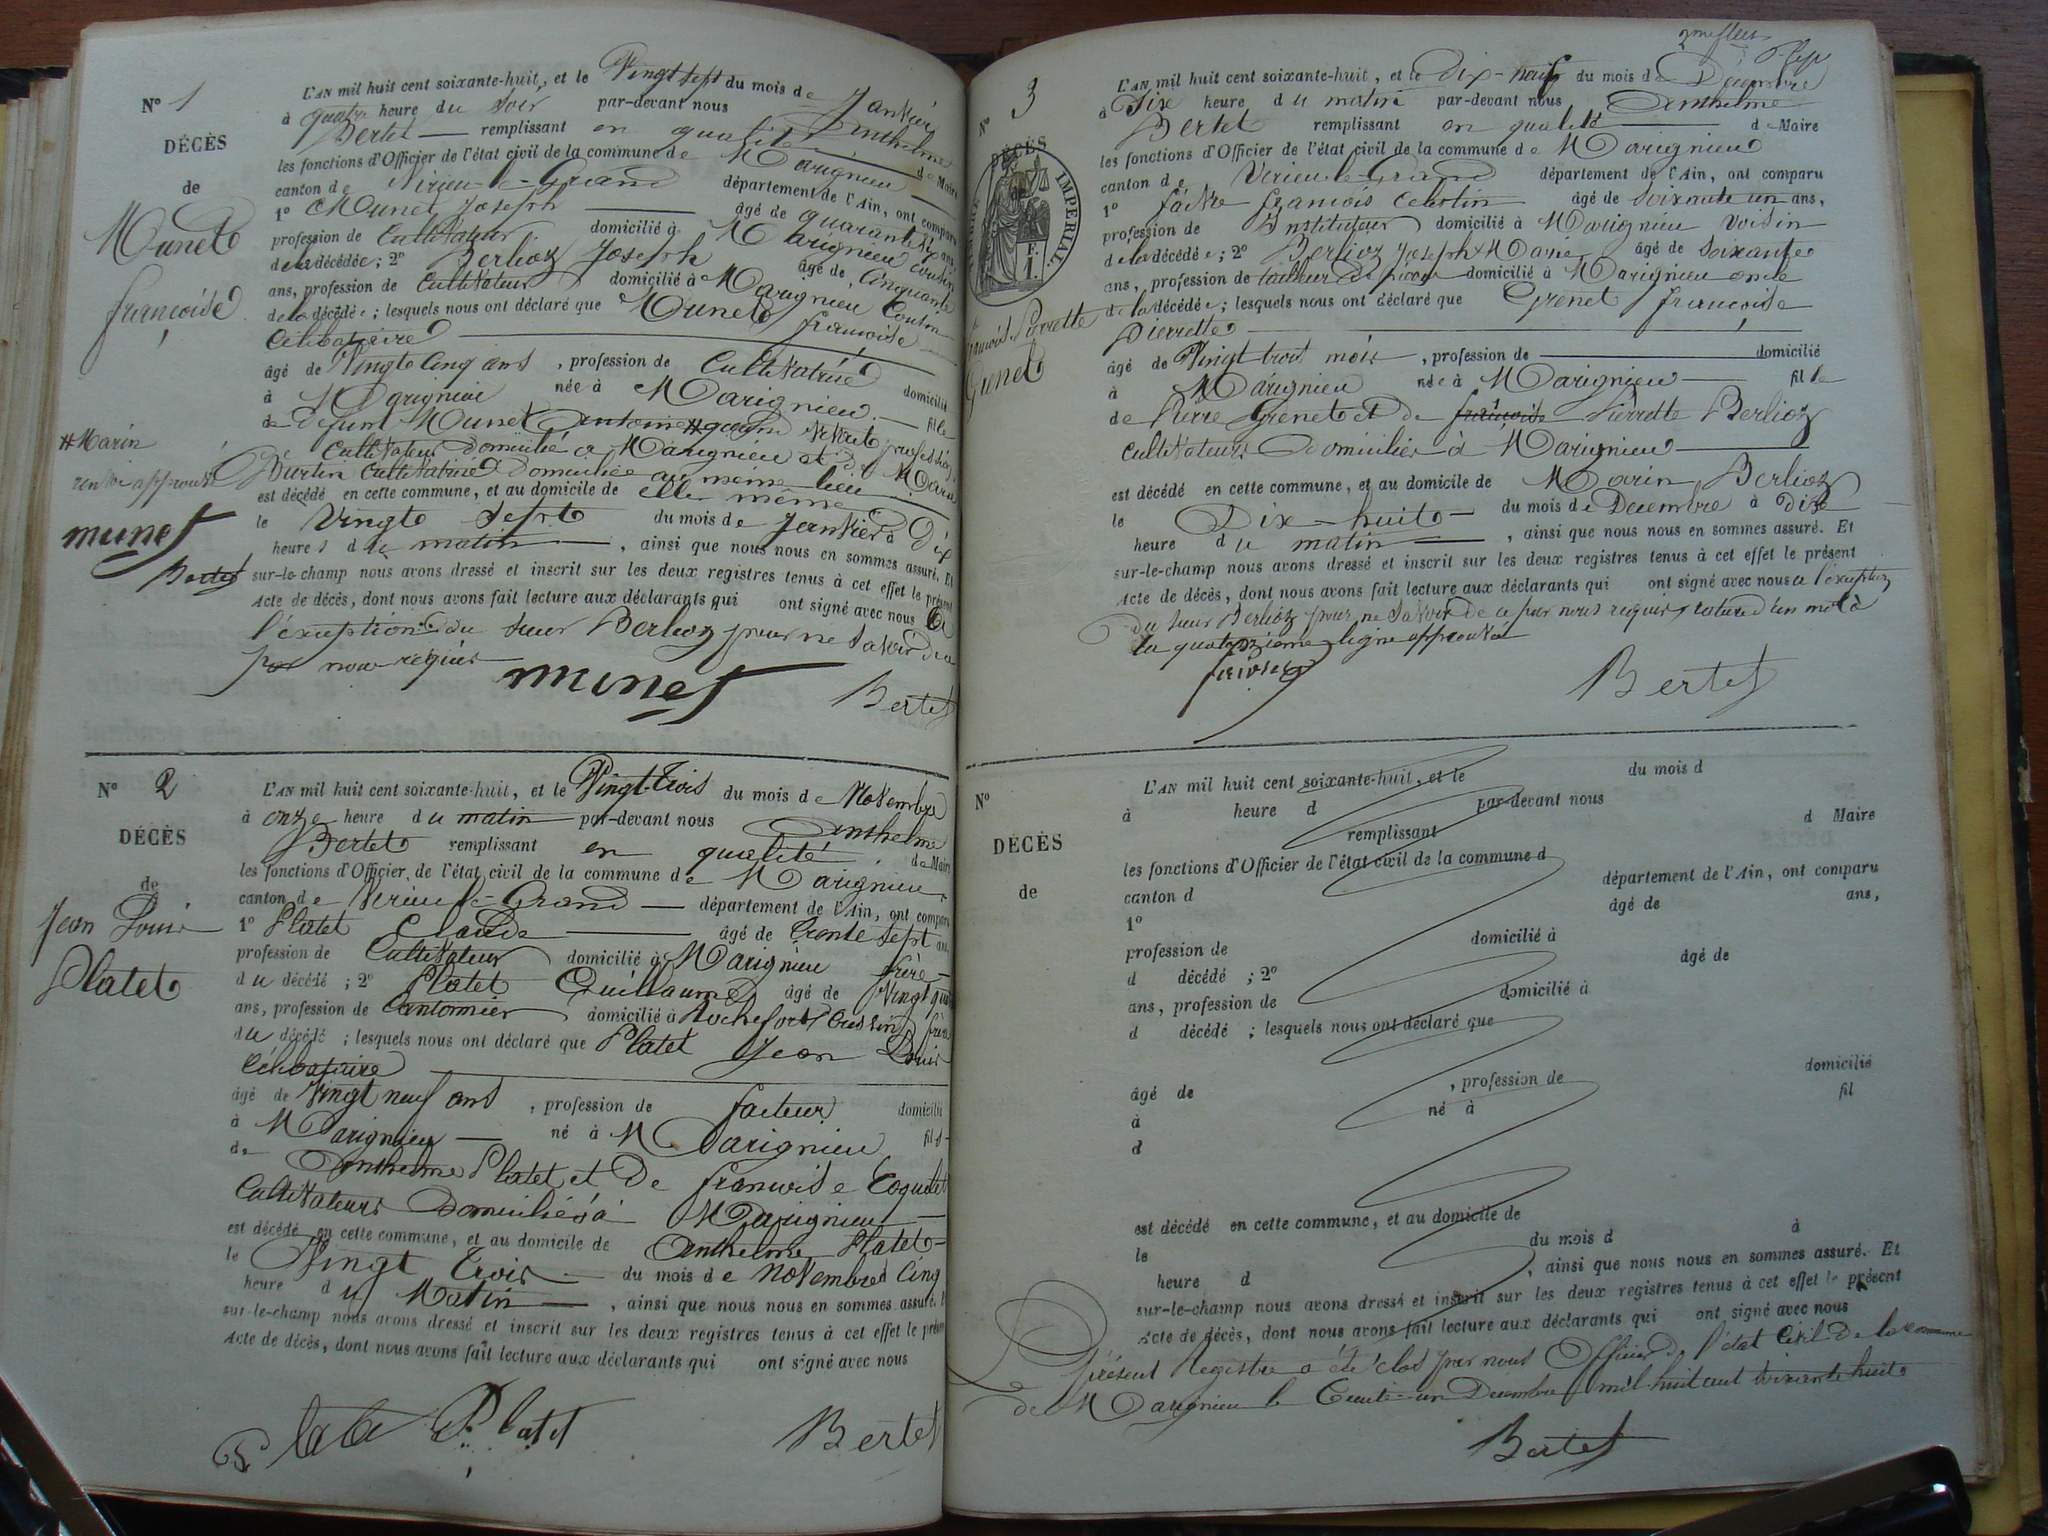 N° 1
DÉCÈS
de
Munet
françoise
L'AN mil huit cent soixante-huit, et le Vingt sept du mois de Janvier
à quatre heure du soir par-devant nous Anthelme
Bertet remplissant en qualité de Maire
les fonctions d'Officier de l'état civil de la commune de Marignieu
canton de Virieu-le-Grand département de l'Ain, ont comparu
1° Munet Joseph âgé de quarante ans,
profession de Cultivateur domicilié à Marignieu cousin
de la décédée ; 2° Berlioz Joseph âgé de Cinquante
ans, profession de Cultivateur domicilié à Marignieu Cousin
de la décédée ; lesquels nous ont déclaré que Munet françoise
Célibataire
âgé de Vingt Cinq ans , profession de Cultivatrice domicilié
à Marignieu née à Marignieu fille
de défunt Munet Antoine # quand vivait profession
de Cultivateur domicilié à Marignieu et de Marie
Burtin Cultivatrice domiciliée au même lieu
est décédé en cette commune, et au domicile de elle même
le Vingt Sept du mois de Janvier à Dix
heures du matin , ainsi que nous nous en sommes assuré. Et
sur-le-champ nous avons dressé et inscrit sur les deux registres tenus à cet effet le présent
Acte de décès, dont nous avons fait lecture aux déclarants qui ont signé avec nous à
l'exception du sieur Berlioz pour ne savoir de ce
par nous requis
# Marin
renvoi approuvé
munet
Bertet
munet Bertet
N° 2
DÉCÈS
de
Jean Louis
Platet
L'AN mil huit cent soixante-huit, et le Vingt-Trois du mois de Novembre
à onze heure du matin par-devant nous Anthelme
Bertet remplissant en qualité de Maire
les fonctions d'Officier de l'état civil de la commune de Marignieu
canton de Virieu-le-Grand département de l'Ain, ont comparu
1° Platet Claude âgé de Trente sept ans,
profession de Cultivateur domicilié à Marignieu frère
du décédé ; 2° Platet Guillaume âgé de Vingt
ans, profession de Cantonnier domicilié à Rochefort frère
du décédé ; lesquels nous ont déclaré que Platet Jean Louis
Célibataire
âgé de Vingt neuf ans , profession de facteur domicilié
à Marignieu né à Marignieu fils
de Anthelme Platet et de françoise Coquelet
Cultivateurs domiciliés à Marignieu
est décédé en cette commune, et au domicile de Anthelme Platet
le Vingt Trois du mois de Novembre à Cinq
heure du Matin , ainsi que nous nous en sommes assuré. Et
sur-le-champ nous avons dressé et inscrit sur les deux registres tenus à cet effet le présent
Acte de décès, dont nous avons fait lecture aux déclarants qui ont signé avec nous
Platet Platet Bertet
2me
N° 3
DÉCÈS
TIMBRE IMPERIAL
F.
1.
françoise Pierrette
Grenet
L'AN mil huit cent soixante-huit, et le dix-neuf du mois de Décembre
à Dix heure du matin par-devant nous Anthelme
Bertet remplissant en qualité de Maire
les fonctions d'Officier de l'état civil de la commune de Marignieu
canton de Virieu-le-Grand département de l'Ain, ont comparu
1° françois Célestin âgé de soixante un ans,
profession de Instituteur domicilié à Marignieu Voisin
de la décédée ; 2° Berlioz Joseph Marie âgé de soixante
ans, profession de tailleur de pierre domicilié à Marignieu oncle
de la décédée ; lesquels nous ont déclaré que Grenet françoise
Pierrette
âgé de Vingt trois mois , profession de domicilié
à Marignieu née à Marignieu fille
de Pierre Grenet et de françoise Pierrette Berlioz
Cultivateurs domiciliés à Marignieu
est décédé en cette commune, et au domicile de Marin Berlioz
le Dix-huit du mois de Décembre à dix
heure du matin , ainsi que nous nous en sommes assuré. Et
sur-le-champ nous avons dressé et inscrit sur les deux registres tenus à cet effet le présent
Acte de décès, dont nous avons fait lecture aux déclarants qui ont signé avec nous à l'exception
du sieur Berlioz pour ne savoir de ce par nous requis, rature d'un mot à
la quatorzième ligne approuvé
Bertet
N°
DÉCÈS
de
L'AN mil huit cent soixante-huit, et le du mois d
à heure d par-devant nous
remplissant d Maire
les fonctions d'Officier de l'état civil de la commune d
canton d département de l'Ain, ont comparu
1° âgé de ans,
profession de domicilié à
d décédé ; 2° âgé de
ans, profession de domicilié à
d décédé ; lesquels nous ont déclaré que
âgé de , profession de domicilié
à né à fil
d
est décédé en cette commune, et au domicile de
le du mois d à
heure d , ainsi que nous nous en sommes assuré. Et
sur-le-champ nous avons dressé et inscrit sur les deux registres tenus à cet effet le présent
Acte de décès, dont nous avons fait lecture aux déclarants qui ont signé avec nous
Le présent registre a été clos par nous Officier de l'état Civil de la commune
de Marignieu le Trente-un Decembre mil huit cent soixante huit
Bertet